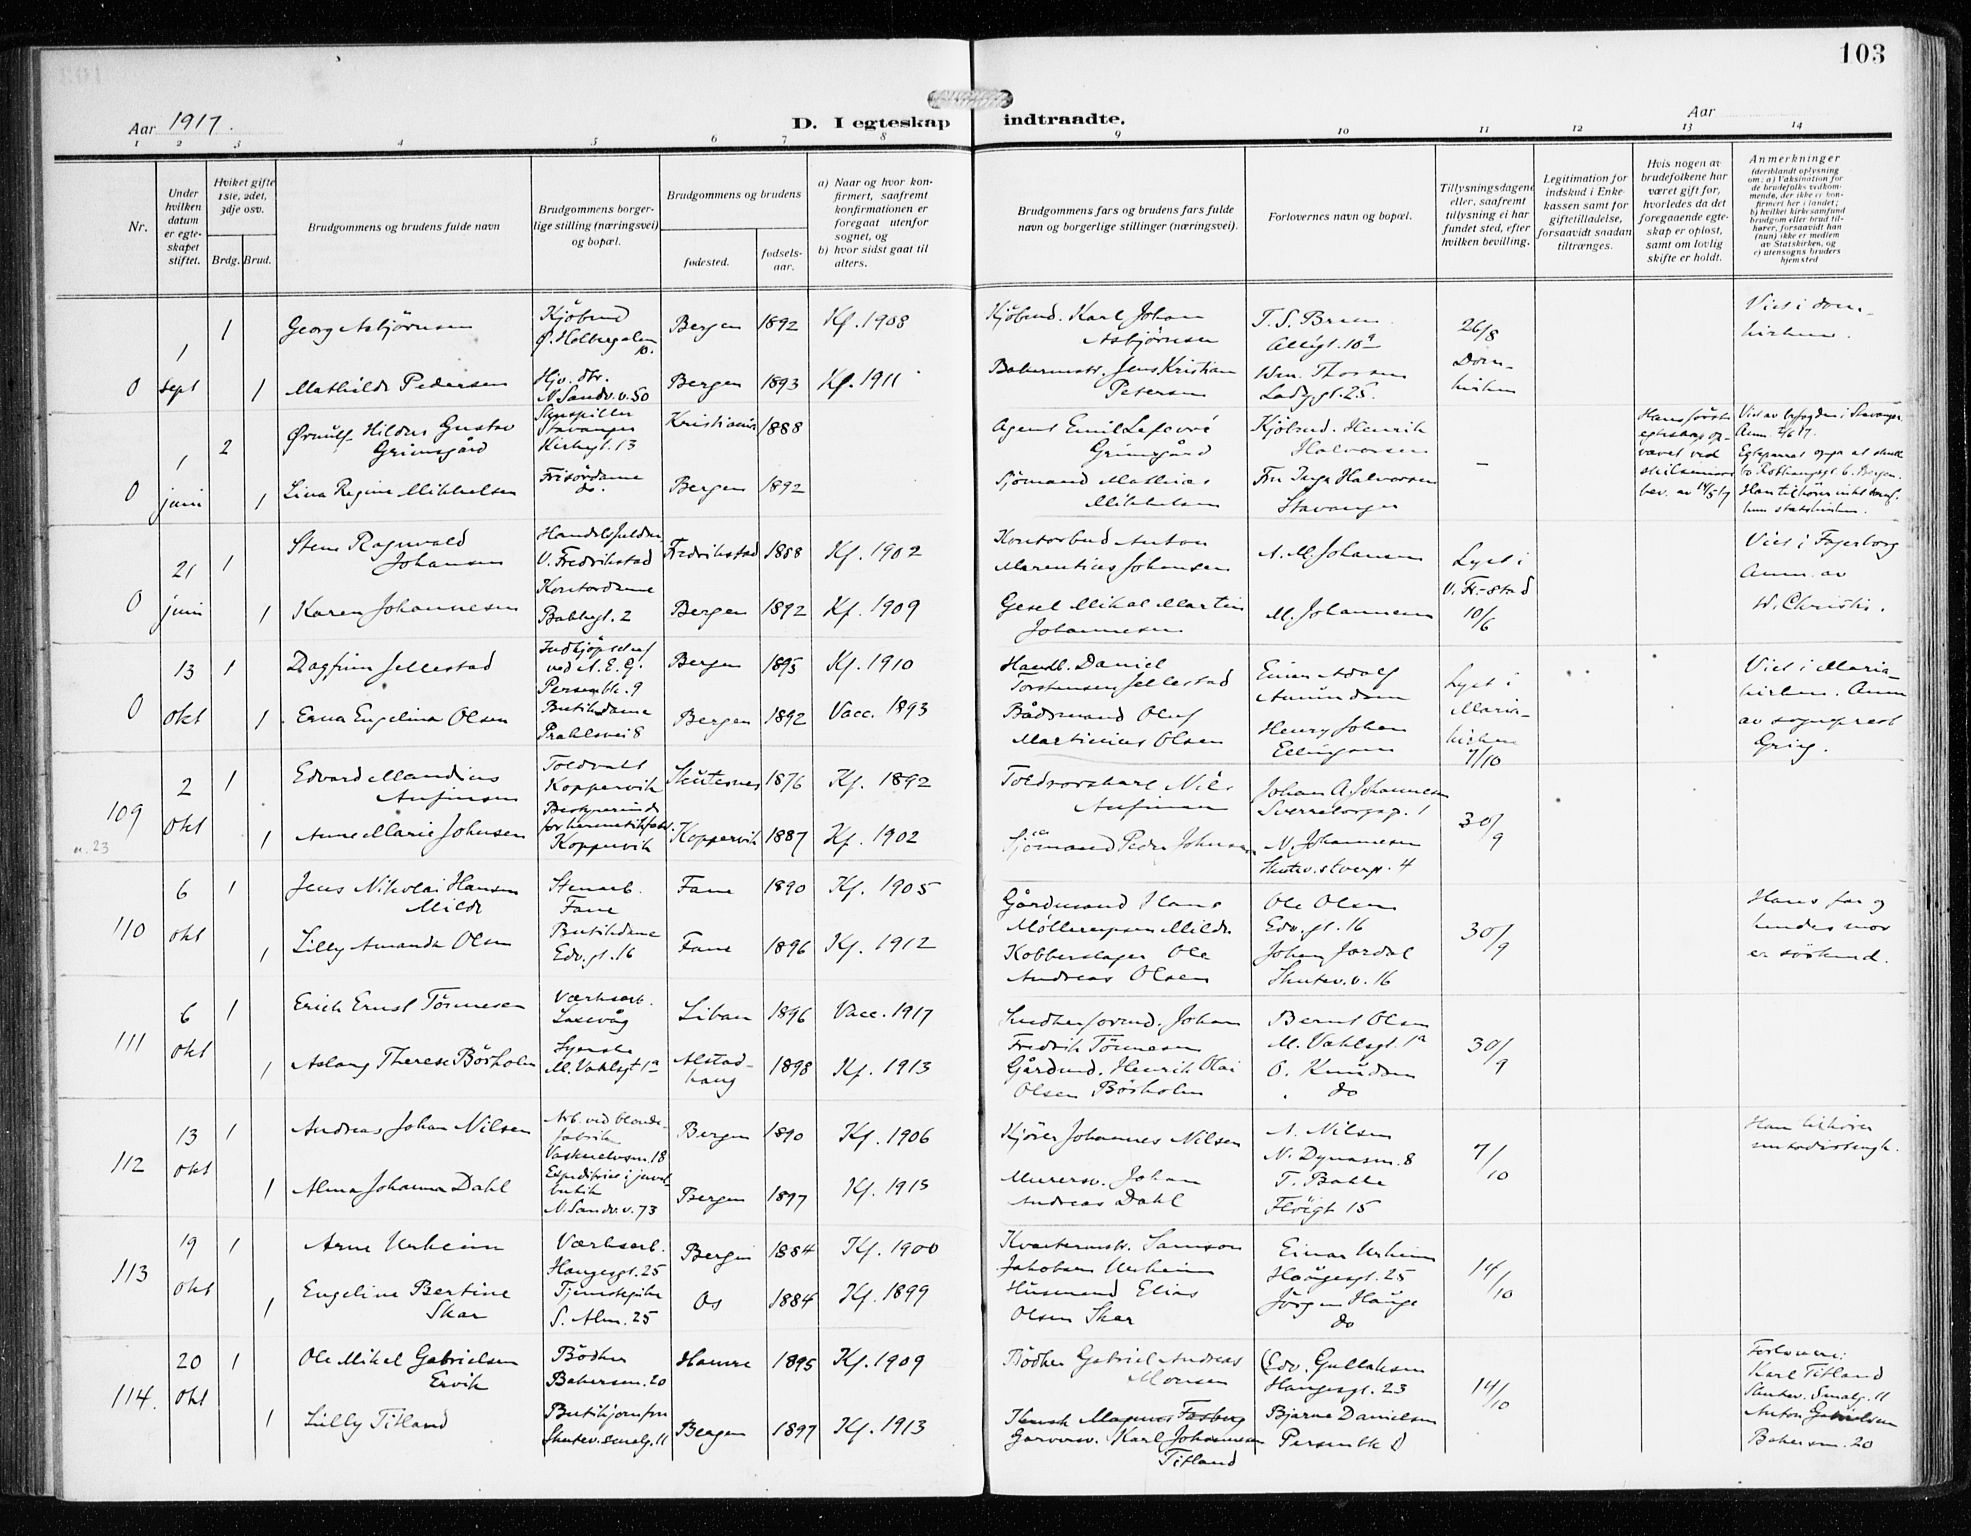 103
Aar 1917.
D. I egteskap indtraadte.
Aar
1 2 3 4 5 6 7 8 9 10 11 12 13 14
Nr.
Under hvilken datum er egte-skapet stiftet.
Hviket gifte 1ste, 2det, 3dje osv.
Brdg. Brud.
Brudgommens og brudens fulde navn
Brudgommens borger-lige stilling (næringsvei) og bopæl.
Brudgommens og brudens
fødested.
fødsels-aar.
a) Naar og hvor kon-firmert, saafremt konfirmationen er foregaat utenfor sognet, og
b) hvor sidst gaat til alters.
Brudgommens fars og brudens fars fulde navn og borgerlige stillinger (næringsvei).
Forlovernes navn og bopæl.
Tillysningsdagene eller, saafremt tillysning ei har fundet sted, efter hvilken bevilling.
Legitimation for indskud i Enke-kassen samt for giftetilladelse, forsaavidt saadan tiltrænges.
Hvis nogen av brudefolkene har været gift før, hvorledes da det foregaaende egte-skap er opløst, samt om lovlig skifte er holdt.
Anmerkninger
0 1 sept 1 Georg Asbjørnsen Kjøbmd Ø. Holbergalm 10. Bergen 1892 Kf. 1908 Kjöbmd. Karl Johan Asbjørnsen 26/8 Dom-kirken Viet i dom-kirken.
1 Mathilde Pedersen N Sandv. v. 50 Bergen 1893 Kf. 1911 Jens Kristian Petersen Wm. Thorsen Ladegt. 25.
0 1 juni 2 Ørnulf Hildus Gustav Grimsgård Skuespiller Stavanger Kirkegt. 13 Kristiania 1888 Agent Emil Grimsgård Kjöbmd. Henrik Halvorsen –
1 Lina Regine Mikkelsen Frisördame do. Bergen 1892 Sjömand Mathias Mikkelsen Fru Inga Halvorsen Stavanger
0 21 juni 1 Sten Ragnvald Johansen V. Fredrikstad Fredrikstad 1888 Kf. 1902 Kontorbud Anton Marentius Johansen A. M. Johansen Lyst i V. Fr.-stad 10/6 Viet i Fagerborg Anm. av W. Christie.
1 Karen Johannesen Kontordame Bakkegt. 2 Bergen 1892 Kf. 1909 Mikal Martin Johannesen M. Johannesen
0 13 okt 1 Dagfinn Jellestad ved A. E. G. Persenbk. 9 Bergen 1895 Kf. 1910 Handl. Daniel Torstensen Jellestad Einar Adolf Amundsen Lyst i Maria-kirken 7/10 Viet i Maria-kirken. Anm av sogneprest Grieg.
1 Erna Engelina Olsen Butikdame Prahlsvei 8 Bergen 1892 Vacc. 1893 Bådsmand Oluf Martinius Olsen Henry Johan Ellingsen
109 2 okt 1 Edvard Mandius Anfinsen Toldvakt Koppervik Skutesnes 1876 Kf. 1892 Toldroerskarl Nils Anfinsen Johan A. Johannesen Sverretorgsp. 1 30/9
1 Anne Marie Johnsen Bestyrerinde for hermetikfabr. Koppervik Koppervik 1887 Kf. 1902 Sjömand Peder Johnsen M. Johannesen Skutev. stverg. 4
110 6 okt 1 Jens Nikolai Hansen Milde Stenarb. Fane Fane 1890 Kf. 1905 Gårdmand Hans Møllerupsen Milde Ole Olsen Edv. gt. 16 30/9 Hans far og hendes mor er sökend.
1 Lilly Amanda Olsen Butikdame Edv. gt. 16 Fane 1896 Kf. 1912 Kobberslager Ole Andreas Olsen Johan Jordal Skutev. v. 16
111 6 okt 1 Erich Ernst Tönnesen Værksarb. Laxevåg Libau 1896 Vacc. 1917 Johan Fredrik Tönnesen Bernt Olsen M. Vahlsgt. 1a 30/9
1 Aslaug Therese Börholm Syerske M. Vahlsgt 1a Alstad-haug 1898 Kf. 1913 Gårdmd. Henrik Olai Olsen Börholm O. Knudsen do
112 13 okt 1 Andreas Johan Nilsen Arb. ved blonde-fabrik Vaskerelvsm. 18 Bergen 1890 Kf. 1906 Kjörer Johannes Nilsen A. Nilsen N. Dynasm. 8 7/10 Han tilhører metodistmgh.
1 Alma Johanna Dahl N. Sandv. v. 73 Bergen 1897 Kf. 1913 Murersv. Johan Andreas Dahl T. Bakke Flöigt 15
113 19 okt 1 Arne Urheim Værksarb. Haugesgt. 25 Bergen 1884 Kf. 1900 Kvartermstr. Samson Jakobsen Urheim Einar Urheim Haugesgt. 25 14/10
1 Engeline Bertine Skar Tjenestepike S. Alm. 25 Os 1884 Kf. 1899 Husmand Elias Olsen Skar Jörgen Hauge do
114. 20 okt 1 Ole Mikal Gabrielsen Ervik Bödker Bakersm. 20 Hamre 1895 Kf. 1909 Bödker Gabriel Andreas Monsen Edv. Gullaksen Haugesgt. 23 14/10 Forlovere: Karl Titland Skutev. Smalg. 11 Anton Gabrielsen Bakersm. 20
1 Lilly Titland Butikjomfru Skutev. smalg. 11 Bergen 1897 Kf. 1913 Garversv. Karl Johannesen Titland Bjarne Danielsen Persenbk